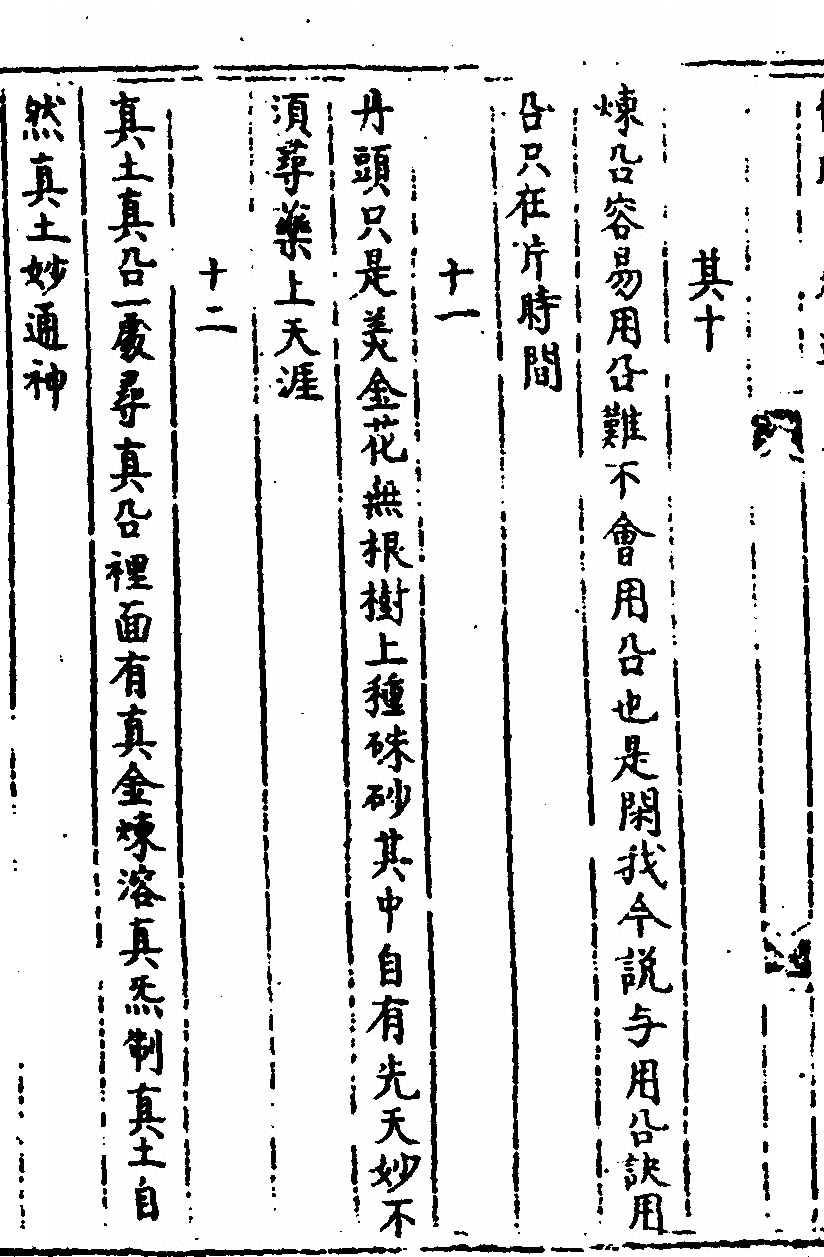 其十
煉㕣容易用㕣難不會用㕣也是閑我今説与用㕣訣用
㕣只在片時間
十一
丹頭只是美金花無根樹上種硃砂其中自有先天妙不
須尋藥上天涯
十二
真土真㕣一處尋真㕣裡面有真金煉溶真炁制真土自
然真土妙通神